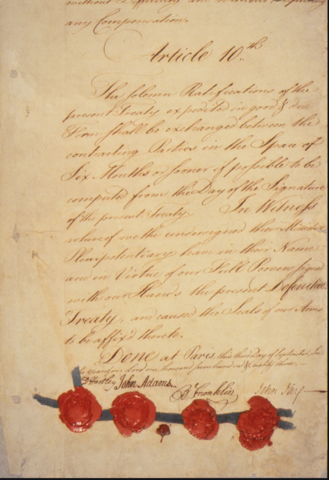 without Difficulty and without requiring
any Compensation.
Article 10th.
The solemn Ratifications of the
present Treaty expedited in good & due
Form shall be exchanged between the
contracting Parties in the Space of
Six Months or sooner if possible to be
computed from the Day of the Signature
of the present Treaty. In Witness
whereof we the undersigned their Ministers
Plenipotentiary have in their Name
and in Virtue of our Full Powers signed
with our Hands the present Definitive
Treaty, and caused the Seals of our Arms
to be affix'd thereto.
Done at Paris, this third Day of September, In
the year of our Lord one thousand seven hundred & eighty three.
D Hartley John Adams B Franklin John Jay